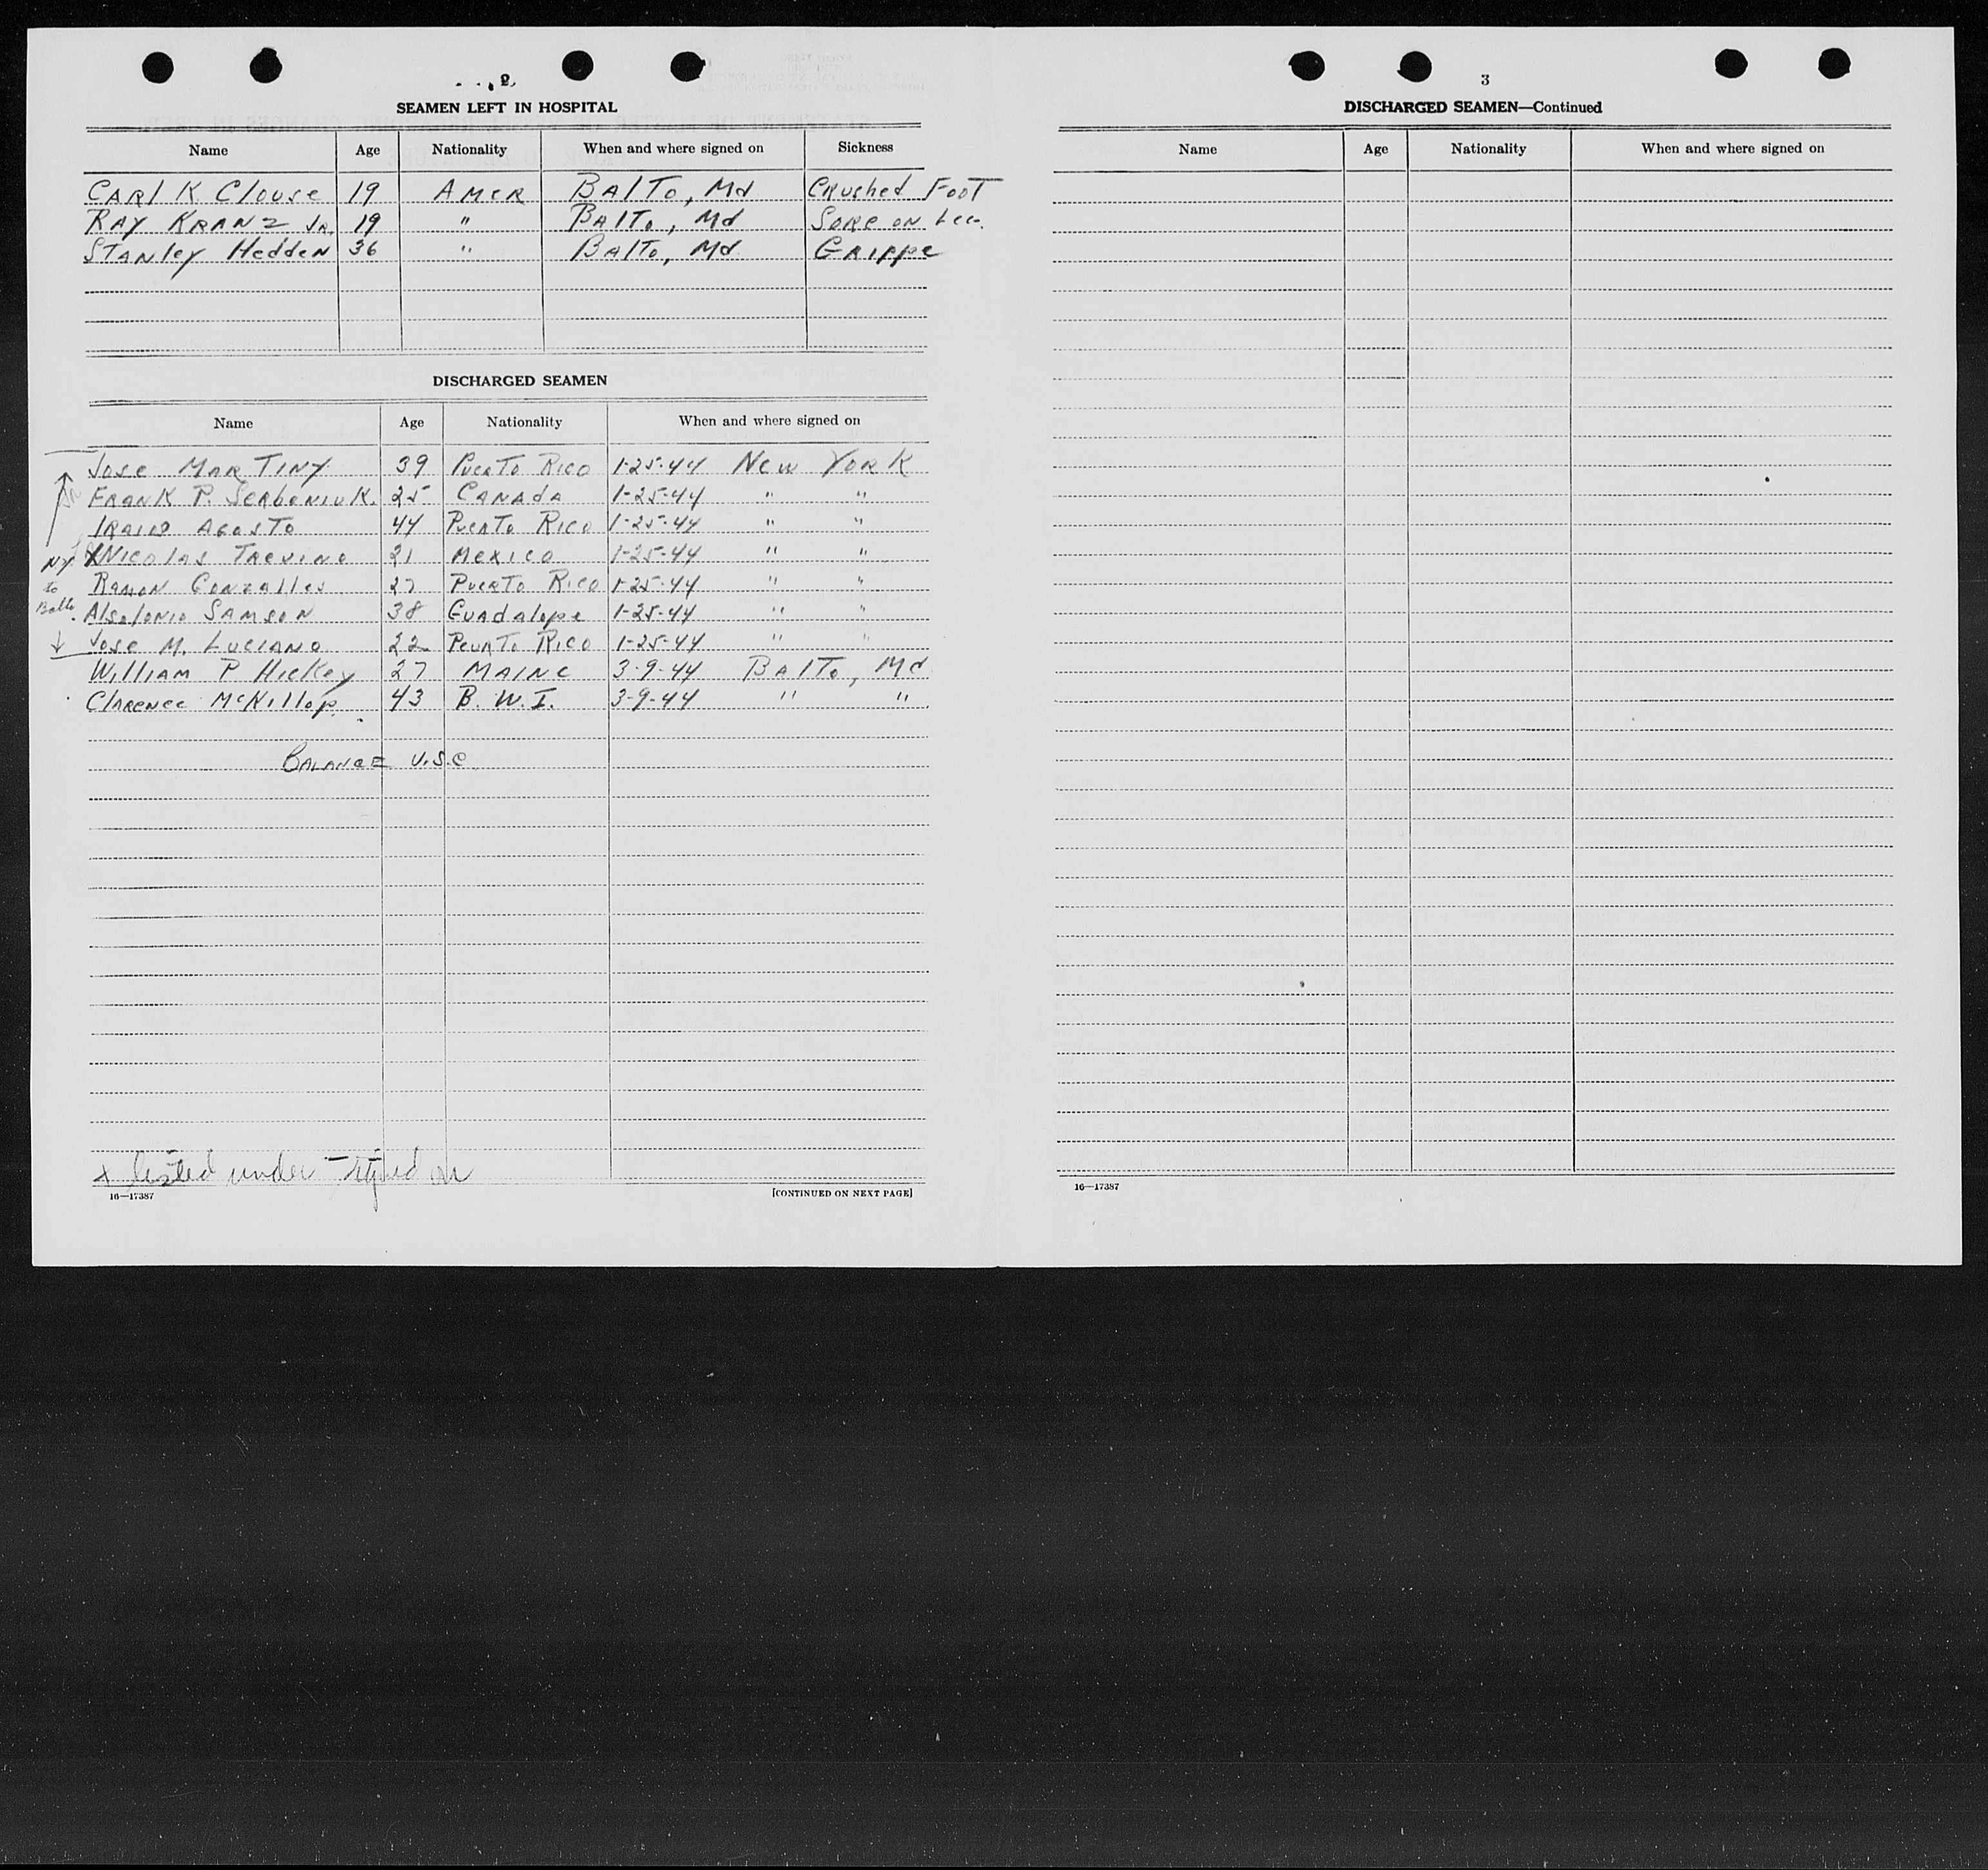 2
SEAMEN LEFT IN HOSPITAL
Name Age Nationality When and where signed on Sickness
Carl K Clouse 19 Amer Balto, Md Crushed Foot
Ray Kranz Jr. 19 " Balto, Md Sore on Leg.
Stanley Hedden 36 " Balto, Md. Grippe
DISCHARGED SEAMEN
Name Age Nationality When and where signed on
Jose Martiny 39 Puerto Rico 1-25-44 New York
Frank P. Serboniuk. 25 Canada 1-25-44 " "
Agosto 44 Puerto Rico 1-25-44 " "
X Nicolas Trevino 21 Mexico 1-25-44 " "
Ramon Gonzalles 27 Puerto Rico 1-25-44 " "
Samson 38 Guadalope 1-25-44 " "
Jose M. Luciano 22 Peurto Rico 1-25-44 " "
William P Hickey 27 Maine 3-9-44 Balto, Md
Clarence McKillop. 43 B.W.I. 3-9-44 " "
NY
to
Balto.
Balance U.S.C
x listed under signed on
16—17387 [CONTINUED ON NEXT PAGE]
3
DISCHARGED SEAMEN—Continued
Name Age Nationality When and where signed on
16—17387